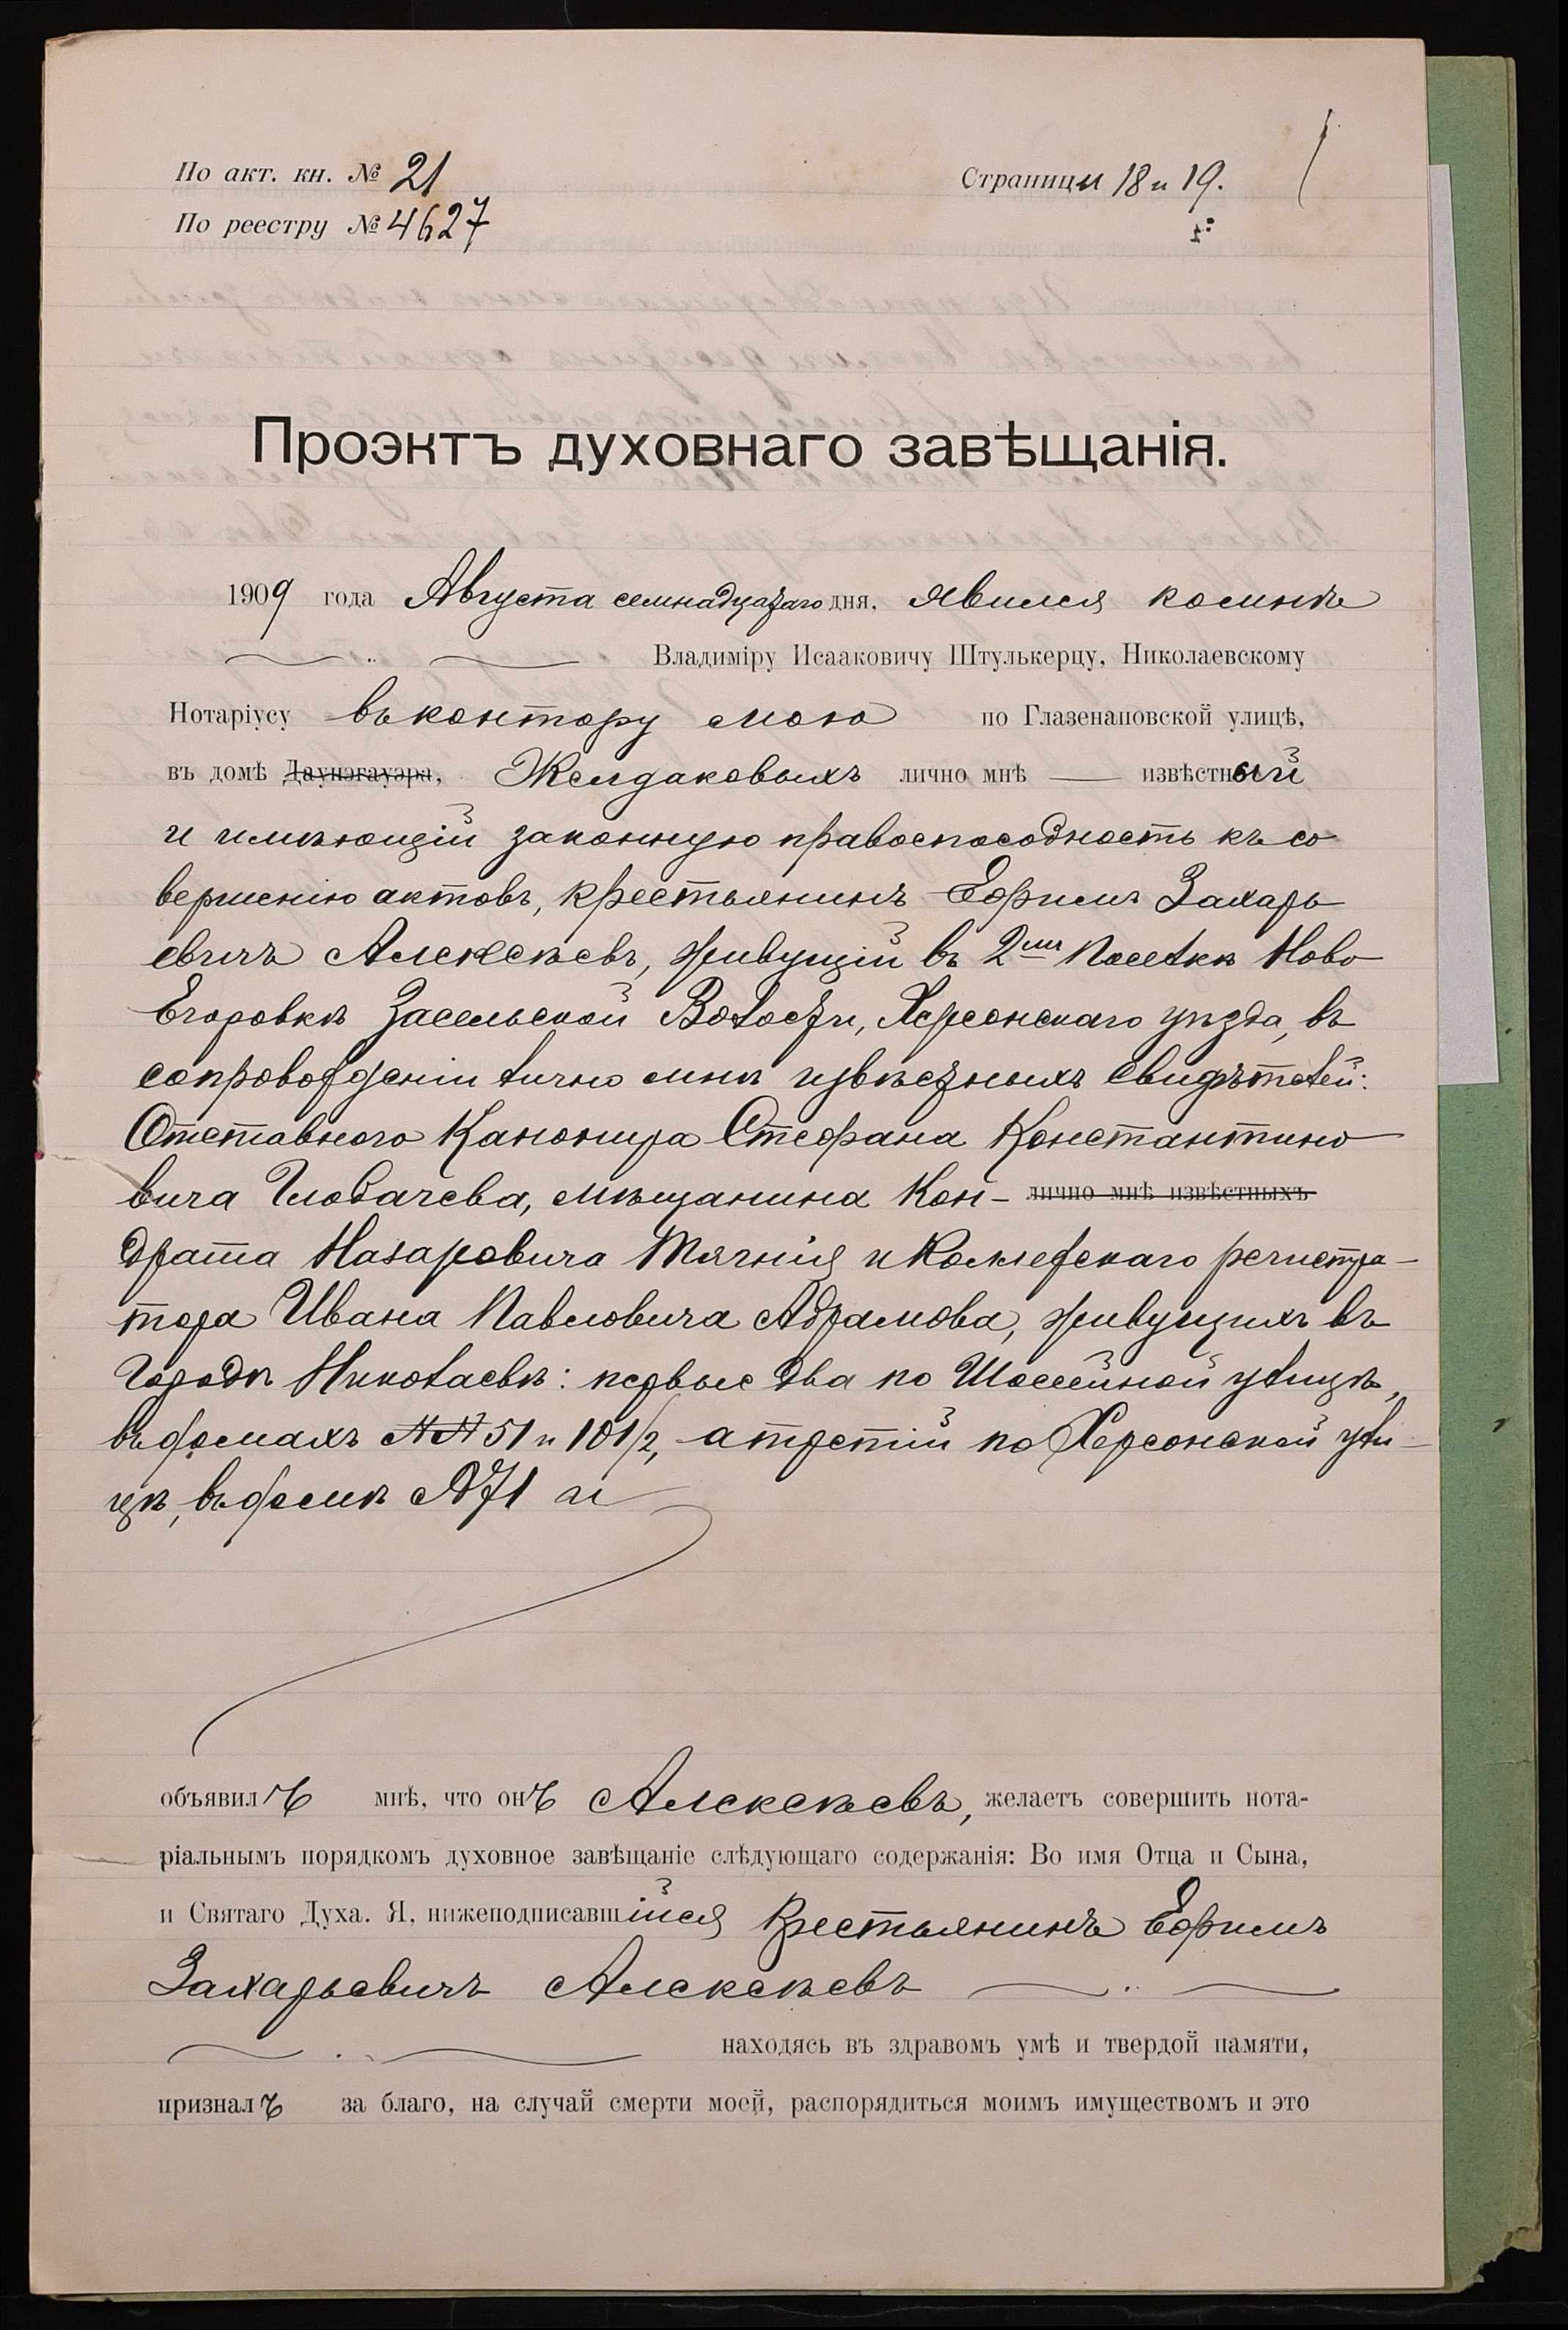 По акт. кн. № 21
Страницы 18 и 19.
По реестру № 4627
Проэктъ духовнаго завѣщанія.
1909 года Августа семнадцатаго дня, явился ко мнѣ
Владиміру Исааковичу Штулькерцу, Николаевскому
Нотаріусу въ контору мою по Глазенаповской улицѣ,
въ домѣ Даунэгауэра, Желдаковыхъ лично мнѣ — извѣстный
и имѣющій законную правоспособность къ со
вершенію актовъ, крестьянинъ Ефимъ Захарь
евичъ Алексѣевъ, живущій въ 2мъ Поселкѣ Ново
Егоровкѣ Засельской Волости, Херсонскаго уѣзда, въ
сопровожденіи лично мнѣ извѣстныхъ свидѣтелей:
Отставного Канонира Стефана Константино
вича Глобачева, мѣщанина Кон- лично мнѣ извѣстныхъ
драта Назаровича Тягнія и Коллежскаго регистра-
тора Ивана Павловича Абрамова, живущихъ въ
Городѣ Николаевѣ: первые два по Шоссейной улицѣ,
въ домахъ №№ 51 и 101/2, а третій по Херсонской ули-
цѣ, въ домѣ № 71 и
объявилъ мнѣ, что онъ Алексѣевъ, желаетъ совершить нота-
ріальнымъ порядкомъ духовное завѣщаніе слѣдующаго содержанія: Во имя Отца и Сына,
и Святаго Духа. Я, нижеподписавшійся крестьянинъ Ефимъ
Захарьевичъ Алексѣевъ
находясь въ здравомъ умѣ и твердой памяти,
призналъ за благо, на случай смерти моей, распорядиться моимъ имуществомъ и это